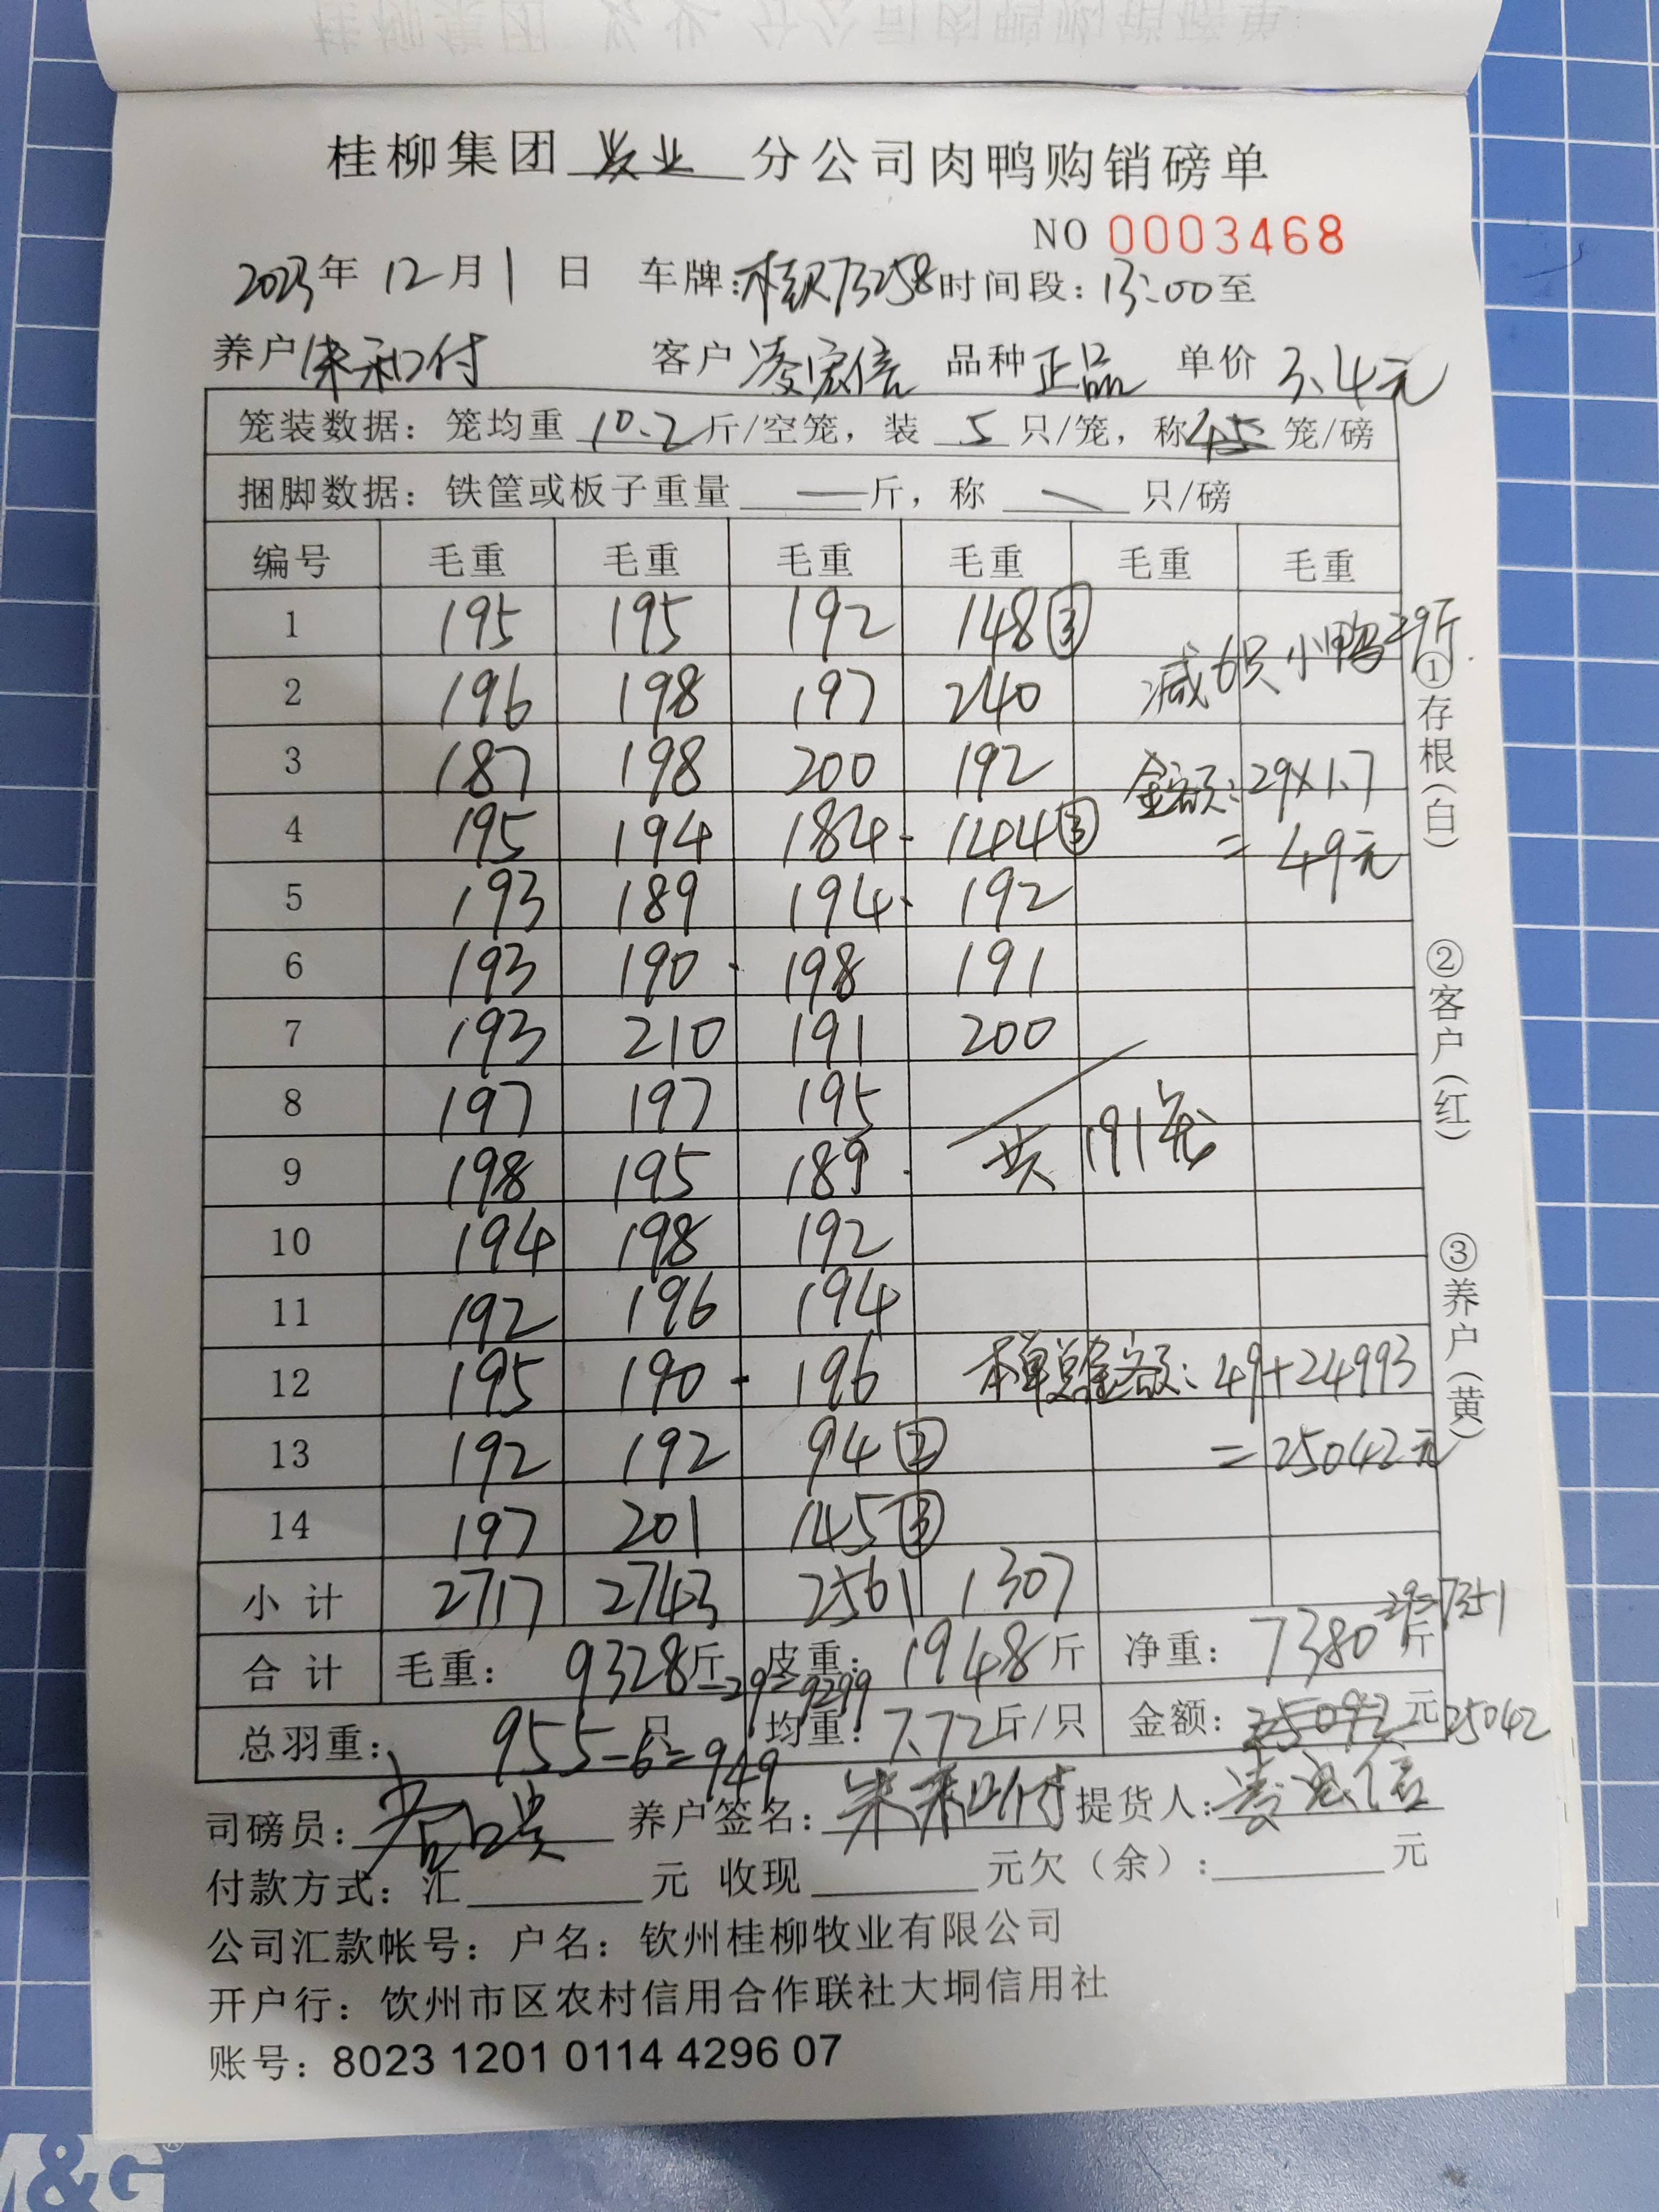 桂柳集团 牧业 分公司肉鸭购销磅单
NO 0003468
2023年 12月 1 日 车牌: 73258 时间段: 13:00至
养户 朱和付 客户 凌宏信 品种 正品 单价 3.4元
笼装数据: 笼均重 10.2 斤/空笼, 装 5 只/笼, 称 笼/磅
捆脚数据: 铁筐或板子重量 — 斤, 称 \ 只/磅
编号 毛重 毛重 毛重 毛重 毛重 毛重
1 195 195 192 148③ 减6只小鸭29斤
2 196 198 197 240
3 187 198 200 192 金额:29×1.7
4 195 194 184 144③ =49元
5 193 189 194 192
6 193 190 198 191
7 193 210 191 200
8 197 197 195
9 198 195 189 共191笼
10 194 198 192
11 192 196 194
12 195 190 196 本单总金额:49+24993
13 192 192 94② =25042元
14 197 201 145③
小计 2717 2743 2561 1307
合计 毛重: 9328斤-29=9299 皮重: 1948斤 净重: 7380斤-29=7351
总羽重: 955只-6=949 均重: 7.72斤/只 金额: 25092元 25042
司磅员: 养户签名: 朱和付 提货人: 凌宏信
付款方式: 汇 元 收现 元欠(余): 元
公司汇款帐号: 户名: 钦州桂柳牧业有限公司
开户行: 饮州市区农村信用合作联社大垌信用社
账号: 8023 1201 0114 4296 07
①存根(白)
②客户(红)
③养户(黄)
M&G